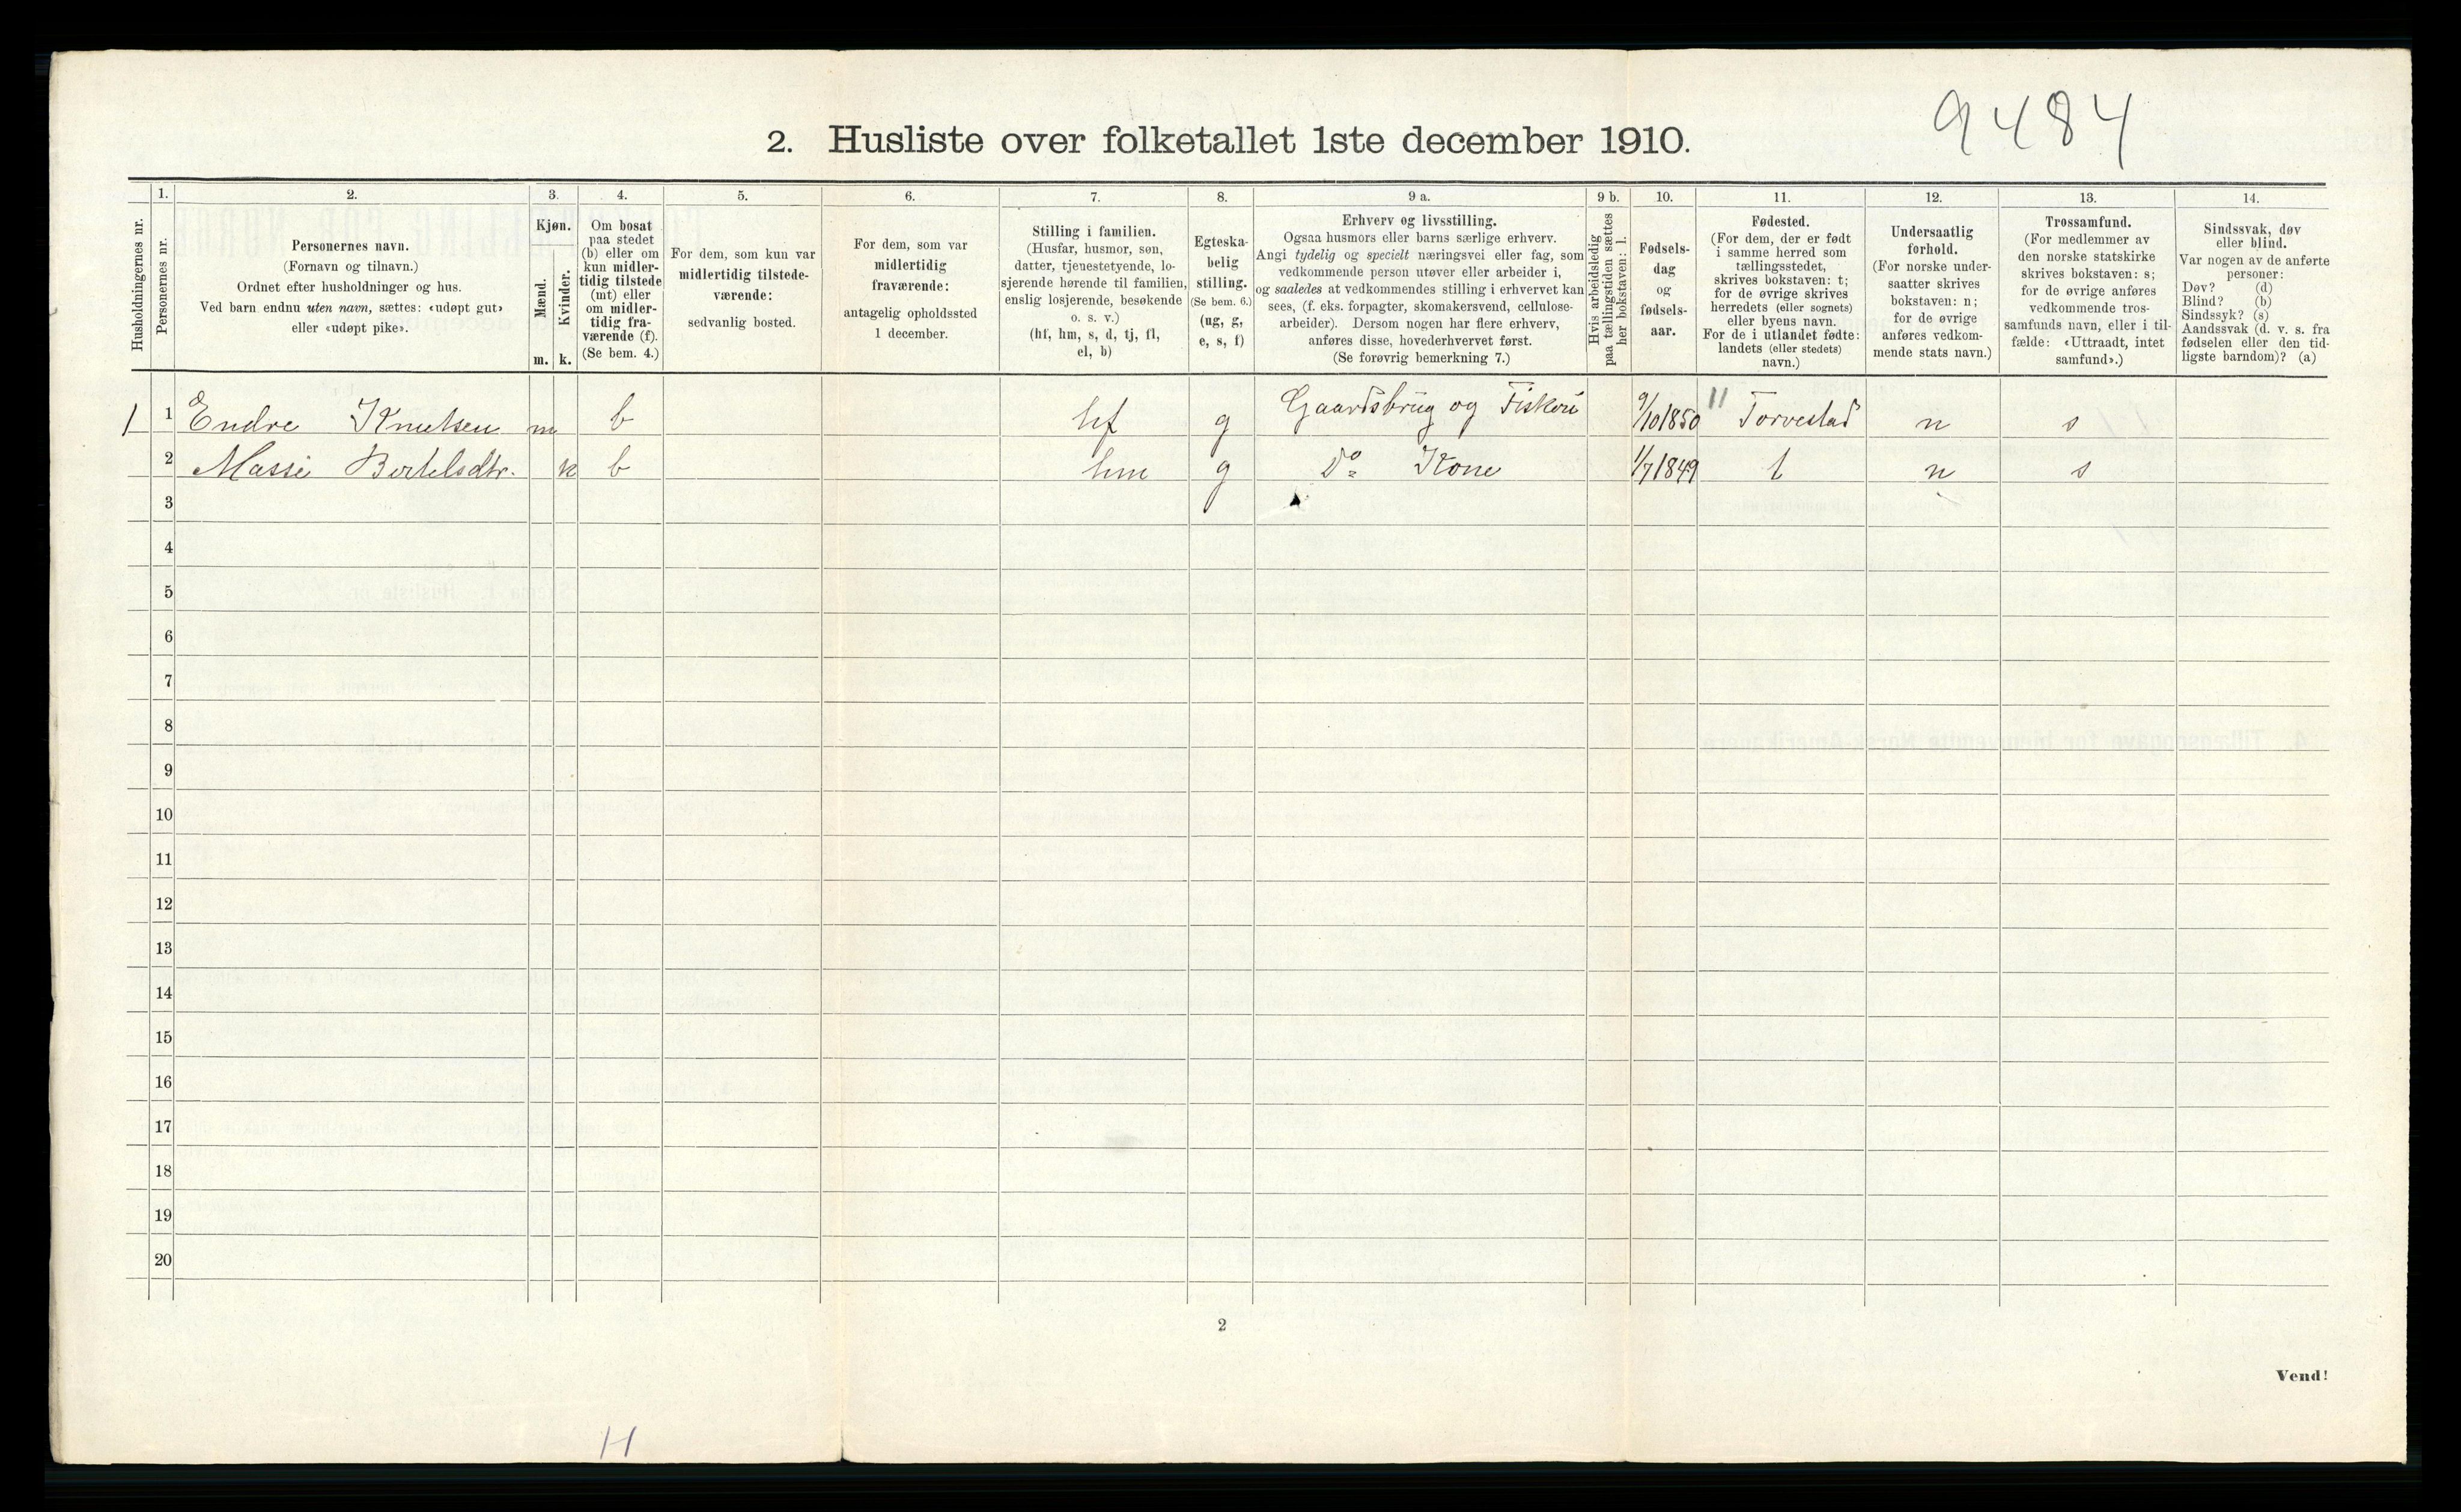 9484
2. Husliste over folketallet 1ste december 1910.
Husholdningernes nr.
1.
Personernes nr.
2.
Personernes navn.
(Fornavn og tilnavn.)
Ordnet efter husholdninger og hus.
Ved barn endnu uten navn, sættes: «udøpt gut»
eller «udøpt pike».
3.
Kjøn.
Mænd.
Kvinder.
m. k.
4.
Om bosat
paa stedet
(b) eller om
kun midler-
tidig tilstede
(mt) eller
om midler-
tidig fra-
værende (f).
(Se bem. 4.)
5.
For dem, som kun var
midlertidig tilstede-
værende:
sedvanlig bosted.
6.
For dem, som var
midlertidig
fraværende:
antagelig opholdssted
1 december.
7.
Stilling i familien.
(Husfar, husmor, søn,
datter, tjenestetyende, lo-
sjerende hørende til familien,
enslig losjerende, besøkende
o. s. v.)
(hf, hm, s, d, tj, fl,
el, b)
8.
Egteska-
belig
stilling.
(Se bem. 6.)
(ug, g,
e, s, f)
9 a.
Erhverv og livsstilling.
Ogsaa husmors eller barns særlige erhverv.
Angi tydelig og specielt næringsvei eller fag, som
vedkommende person utøver eller arbeider i,
og saaledes at vedkommendes stilling i erhvervet kan
sees, (f. eks. forpagter, skomakersvend, cellulose-
arbeider). Dersom nogen har flere erhverv,
anføres disse, hovederhvervet først.
(Se forøvrig bemerkning 7.)
9 b.
Hvis arbeidsledig
paa tællingstiden sættes
her bokstaven: l.
10.
Fødsels-
dag
og
fødsels-
aar.
11.
Fødested.
(For dem, der er født
i samme herred som
tællingsstedet,
skrives bokstaven: t;
for de øvrige skrives
herredets (eller sognets)
eller byens navn.
For de i utlandet fødte:
landets (eller stedets)
navn.)
12.
Undersaatlig
forhold.
(For norske under-
saatter skrives
bokstaven: n;
for de øvrige
anføres vedkom-
mende stats navn.)
13.
Trossamfund.
(For medlemmer av
den norske statskirke
skrives bokstaven: s;
for de øvrige anføres
vedkommende tros-
samfunds navn, eller i til-
fælde: «Uttraadt, intet
samfund».)
14.
Sindssvak, døv
eller blind.
Var nogen av de anførte
personer:
Døv? (d)
Blind? (b)
Sindssyk? (s)
Aandssvak (d. v. s. fra
fødselen eller den tid-
ligste barndom)? (a)
1 1 Endre Knutsen m b hf g Gaardsbrug og Fiskeri 9/10 1850 11 Torvestad n s
2 Massi Bertelsdtr. k b hm g Do Kone 1/7 1849 t n s
3
4
5
6
7
8
9
10
11
12
13
14
15
16
17
18
19
20
2
Vend!
H